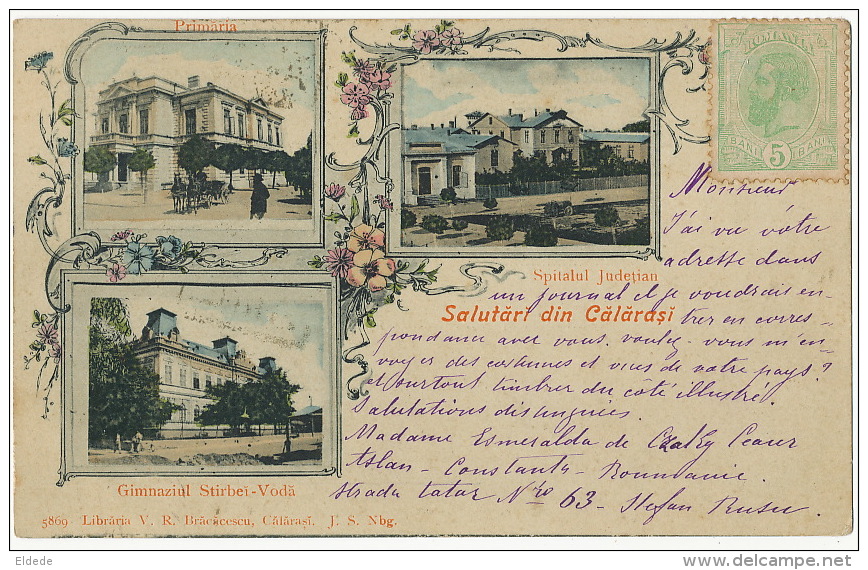 Primăria
ROMANIA
BANI 5 BANI
Spitalul Județian
Salutări din Călărași
Gimnaziul Stirbeĭ-Vodă
5869 Librăria V. R. Brăcăcescu, Călărași. J. S. Nbg.
Monsieur
J'ai vu vôtre
adresse dans
un journal et je voudrais en-
trer en corres-
pondance avec vous. voulez-vous m'en-
voyer des costumes et vues de votre pays?
et surtout timbrer du côté illustré.
Salutations distinguées.
Madame Esmeralda de
Aslan - Constantza - Roumanie.
Strada tatar Nro 63 - Stefan
Eldede
delcampe.net